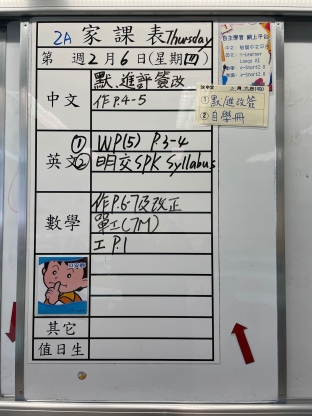 2A 家課表 Thursday
第 週 2月6日(星期四)
中文
默、進評簽改
作 P.4-5
英文
① WP(5) P.3-4
② 明交 SPK Syllabus
數學
作 P.6-7及改正
單工(7M)
工 P.1
其它
值日生
自主學習 網上平台
① 默/進改簽
② 自學冊